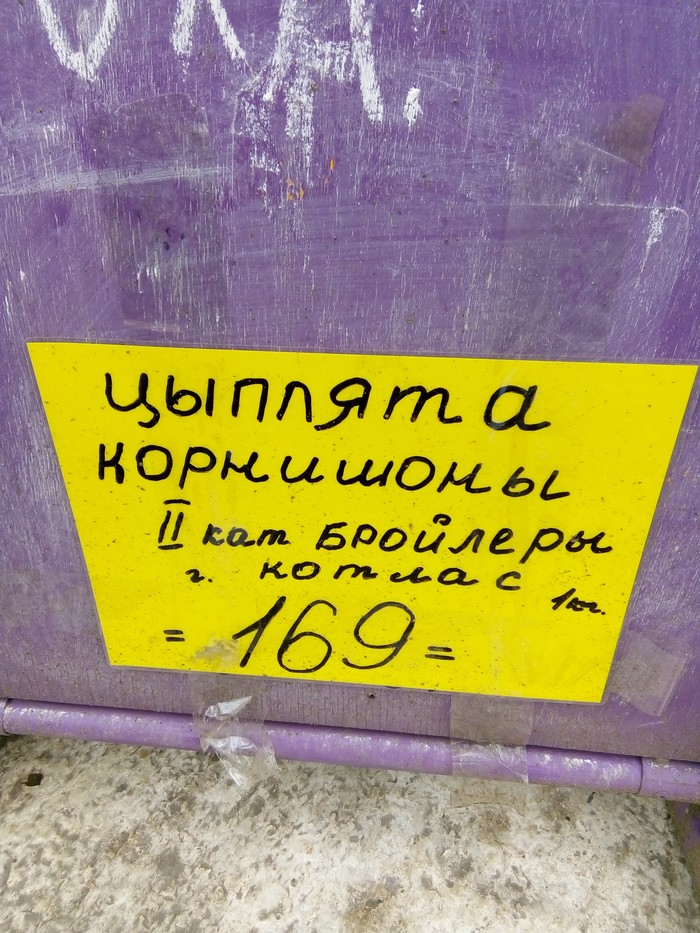 ЦЫПЛЯТА
КОРНИШОНЫ
II кат БРОЙЛЕРЫ
г. КОТЛАС
1кг.
= 169 =